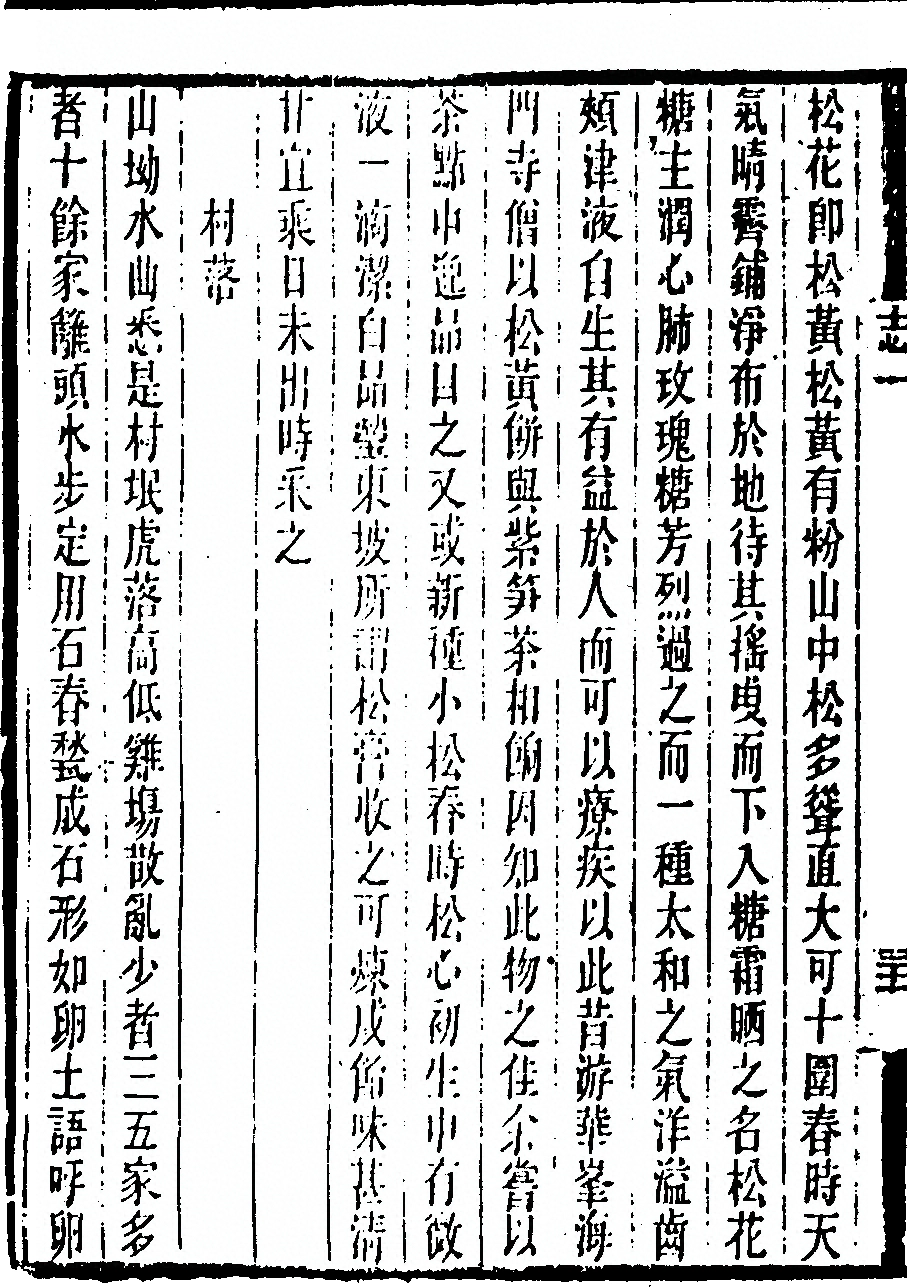 松花卽松黃松黃有粉山中松多聳直大可十圍春時天
氣晴霽鋪淨布於地待其搖曳而下入糖霜晒之名松花
糖主潤心肺玫瑰糖芳烈過之而一種太和之氣洋溢齒
頰津液自生其有益於人而可以療疾以此昔游華峯海
門寺僧以松黃餠與紫笋茶相餉因知此物之佳余嘗以
茶點中逸品目之又或新種小松春時松心初生中有微
液一滴潔白晶瑩東坡所謂松膏收之可煉成飴味甚淸
甘宜乘日未出時采之
村落
山坳水曲悉是村垊虎落高低雞塲散亂少者三五家多
者十餘家籬頭水步定用石舂甃成石形如卵土語呼卵
志一